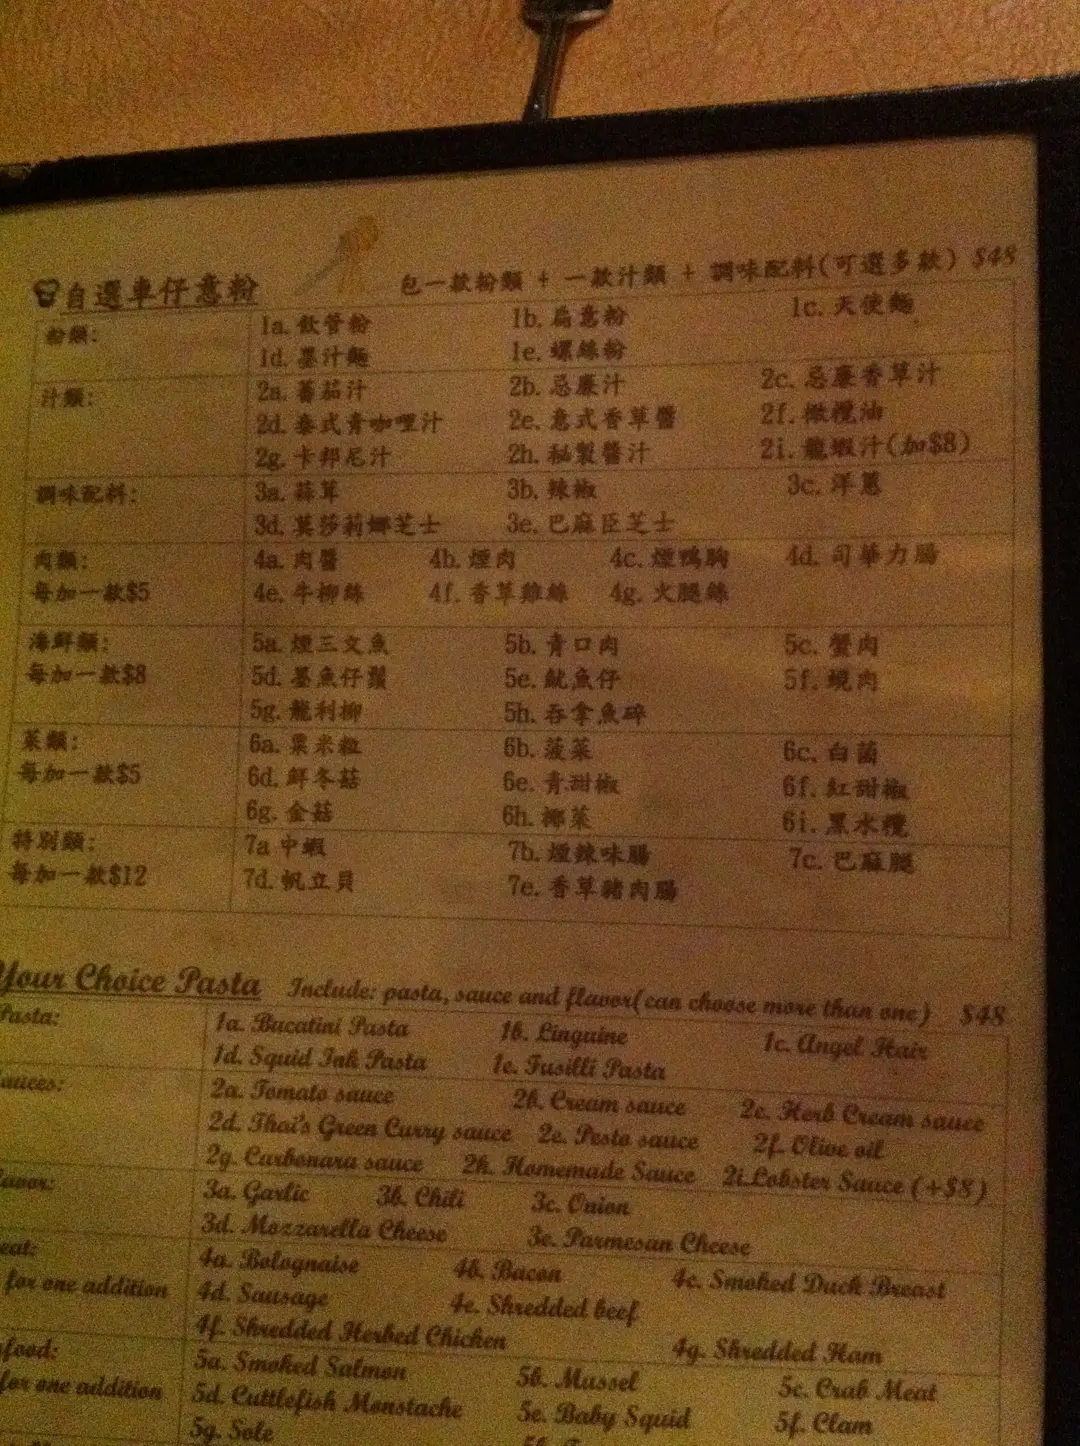 自選車仔意粉 包一款粉類 + 一款汁類 + 調味配料(可選多款) $48
粉類: 1a. 飲管粉 1b. 扁意粉 1c. 天使麵
1d. 墨汁麵 1e. 螺絲粉
汁類: 2a. 蕃茄汁 2b. 忌廉汁 2c. 忌廉香草汁
2d. 泰式青咖喱汁 2e. 意式香草醬 2f. 橄欖油
2g. 卡邦尼汁 2h. 秘製醬汁 2i. 龍蝦汁(加$8)
調味配料: 3a. 蒜茸 3b. 辣椒 3c. 洋蔥
3d. 莫莎莉娜芝士 3e. 巴麻臣芝士
肉類: 4a. 肉醬 4b. 煙肉 4c. 煙鴨胸 4d. 司華力腸
每加一款$5 4e. 牛柳絲 4f. 香草雞絲 4g. 火腿絲
海鮮類: 5a. 煙三文魚 5b. 青口肉 5c. 蟹肉
每加一款$8 5d. 墨魚仔鬚 5e. 魷魚仔 5f. 蜆肉
5g. 龍利柳 5h. 吞拿魚碎
菜類: 6a. 粟米粒 6b. 菠菜 6c. 白菌
每加一款$5 6d. 鮮冬菇 6e. 青甜椒 6f. 紅甜椒
6g. 金菇 6h. 椰菜 6i. 黑水欖
特別類: 7a 中蝦 7b. 煙辣味腸 7c. 巴麻腿
每加一款$12 7d. 帆立貝 7e. 香草豬肉腸
Your Choice Pasta Include: pasta, sauce and flavor(can choose more than one) $48
Pasta: 1a. Bucatini Pasta 1b. Linguine 1c. Angel Hair
1d. Squid Ink Pasta 1e. Fusilli Pasta
auces: 2a. Tomato sauce 2b. Cream sauce 2c. Herb Cream sauce
2d. Thai's Green Curry sauce 2e. Pesto sauce 2f. Olive oil
2g. Carbonara sauce 2h. Homemade Sauce 2i.Lobster Sauce (+$8)
lavor: 3a. Garlic 3b. Chili 3c. Onion
3d. Mozzarella Cheese 3e. Parmesan Cheese
eat: 4a. Bolognaise 4b. Bacon 4c. Smoked Duck Breast
for one addition 4d. Sausage 4e. Shredded beef
4f. Shredded Herbed Chicken 4g. Shredded Ham
food: 5a. Smoked Salmon 5b. Mussel 5c. Crab Meat
for one addition 5d. Cuttlefish Monstache 5e. Baby Squid 5f. Clam
5g. Sole